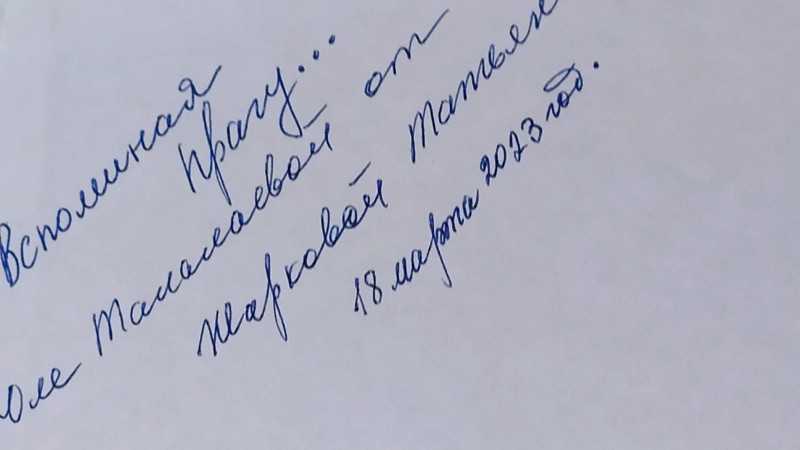 Вспоминая
Прагу...
Оле Талалаевой от
Жарковой Татьян
18 марта 2023 год.